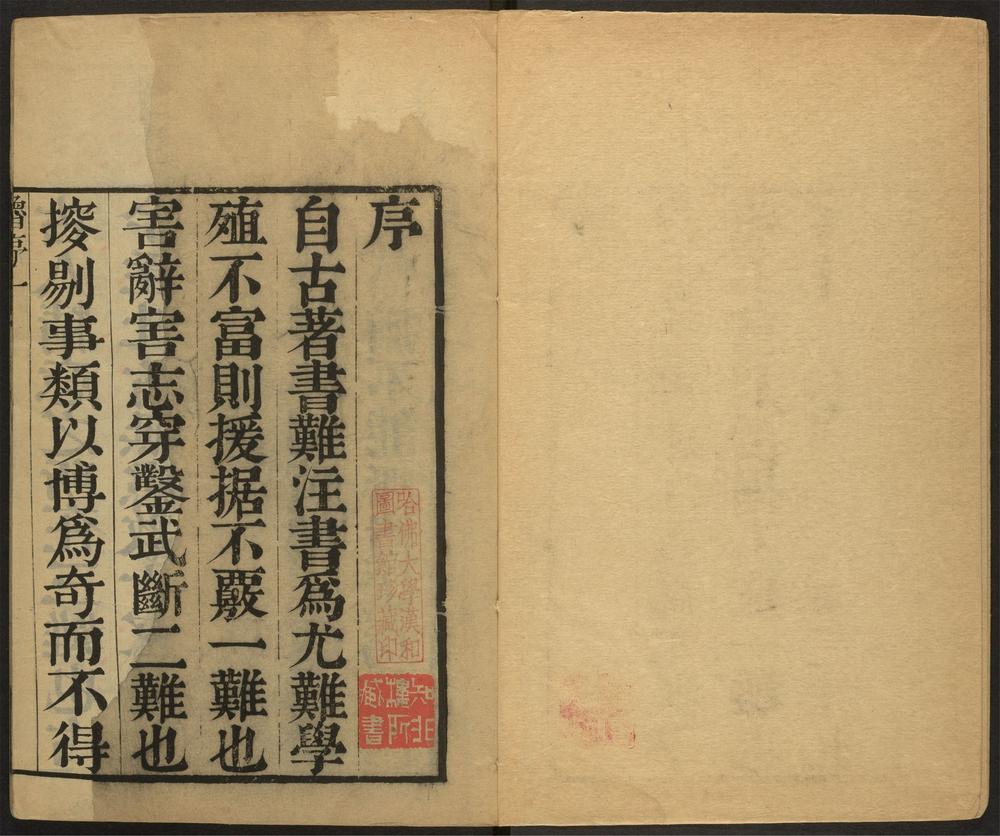 序
自古著書難注書為尤難學
殖不富則援据不覈一難也
害辭害志穿鑿武斷二難也
搜剔事類以博為奇而不得
序一
哈佛大學漢和
圖書館珍藏印
知非
樓所
藏書